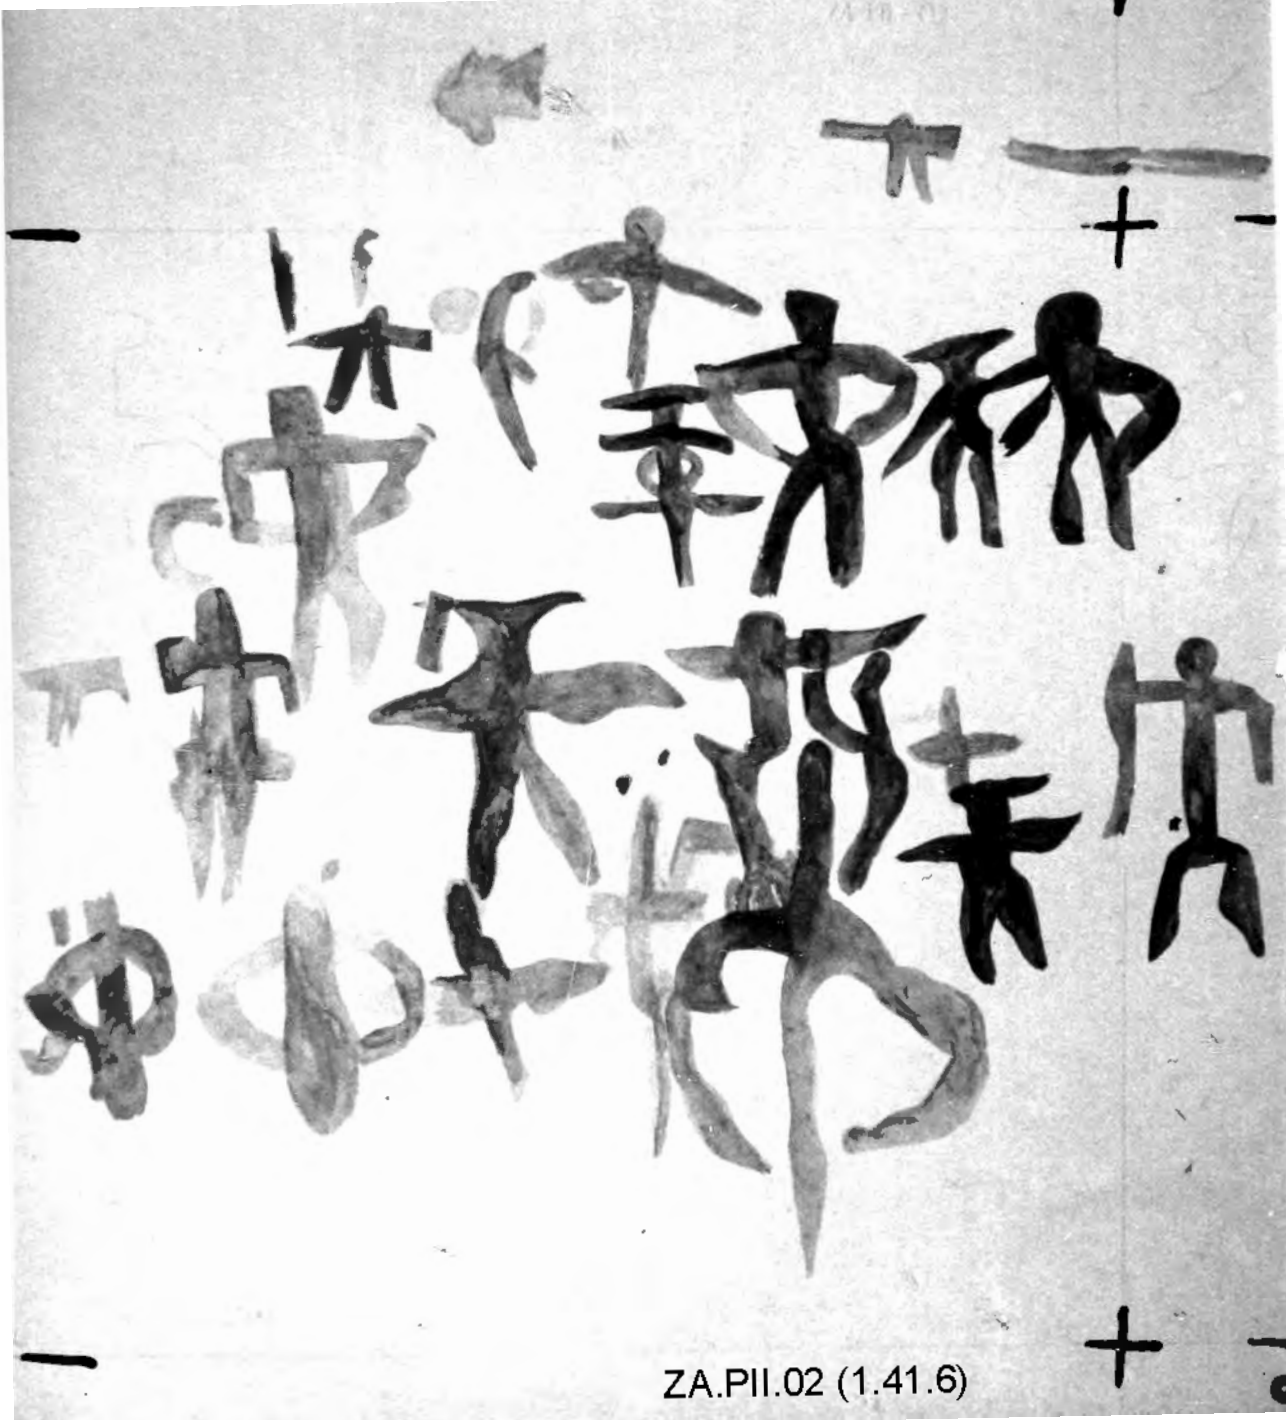 ZA.PII.02 (1.41.6)